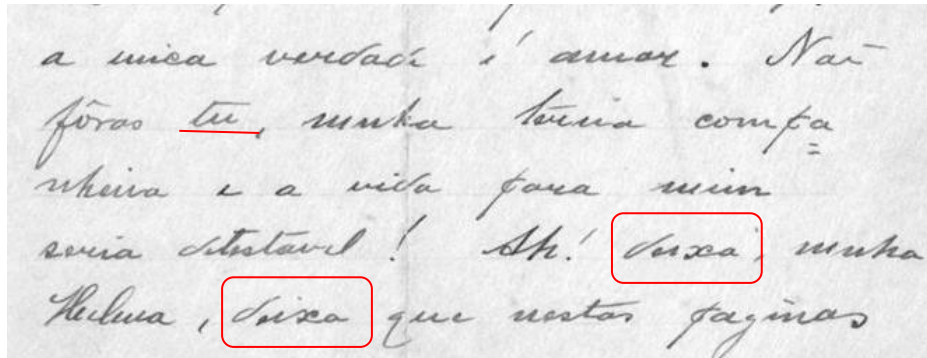 a unica verdade é amar. Não
fôras tu, minha terna compa=
nheira e a vida para mim
seria detestavel! Ah! deixa, minha
, deixa que nestas paginas